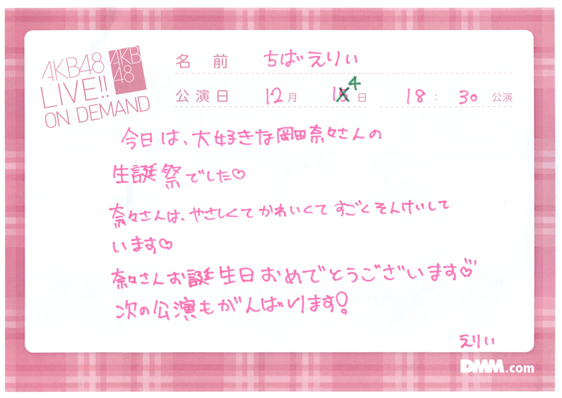 AKB48
LIVE!!
ON DEMAND
AKB
48
名前 ちばえりい
公演日 12月 14日 18:30公演
今日は、大好きな岡田奈々さんの
生誕祭でした♡
奈々さんは、やさしくてかわいくてすごくそんけいして
います♡
奈々さんお誕生日おめでとうございます♡
次の公演もがんばります!
えりい
DMM.com